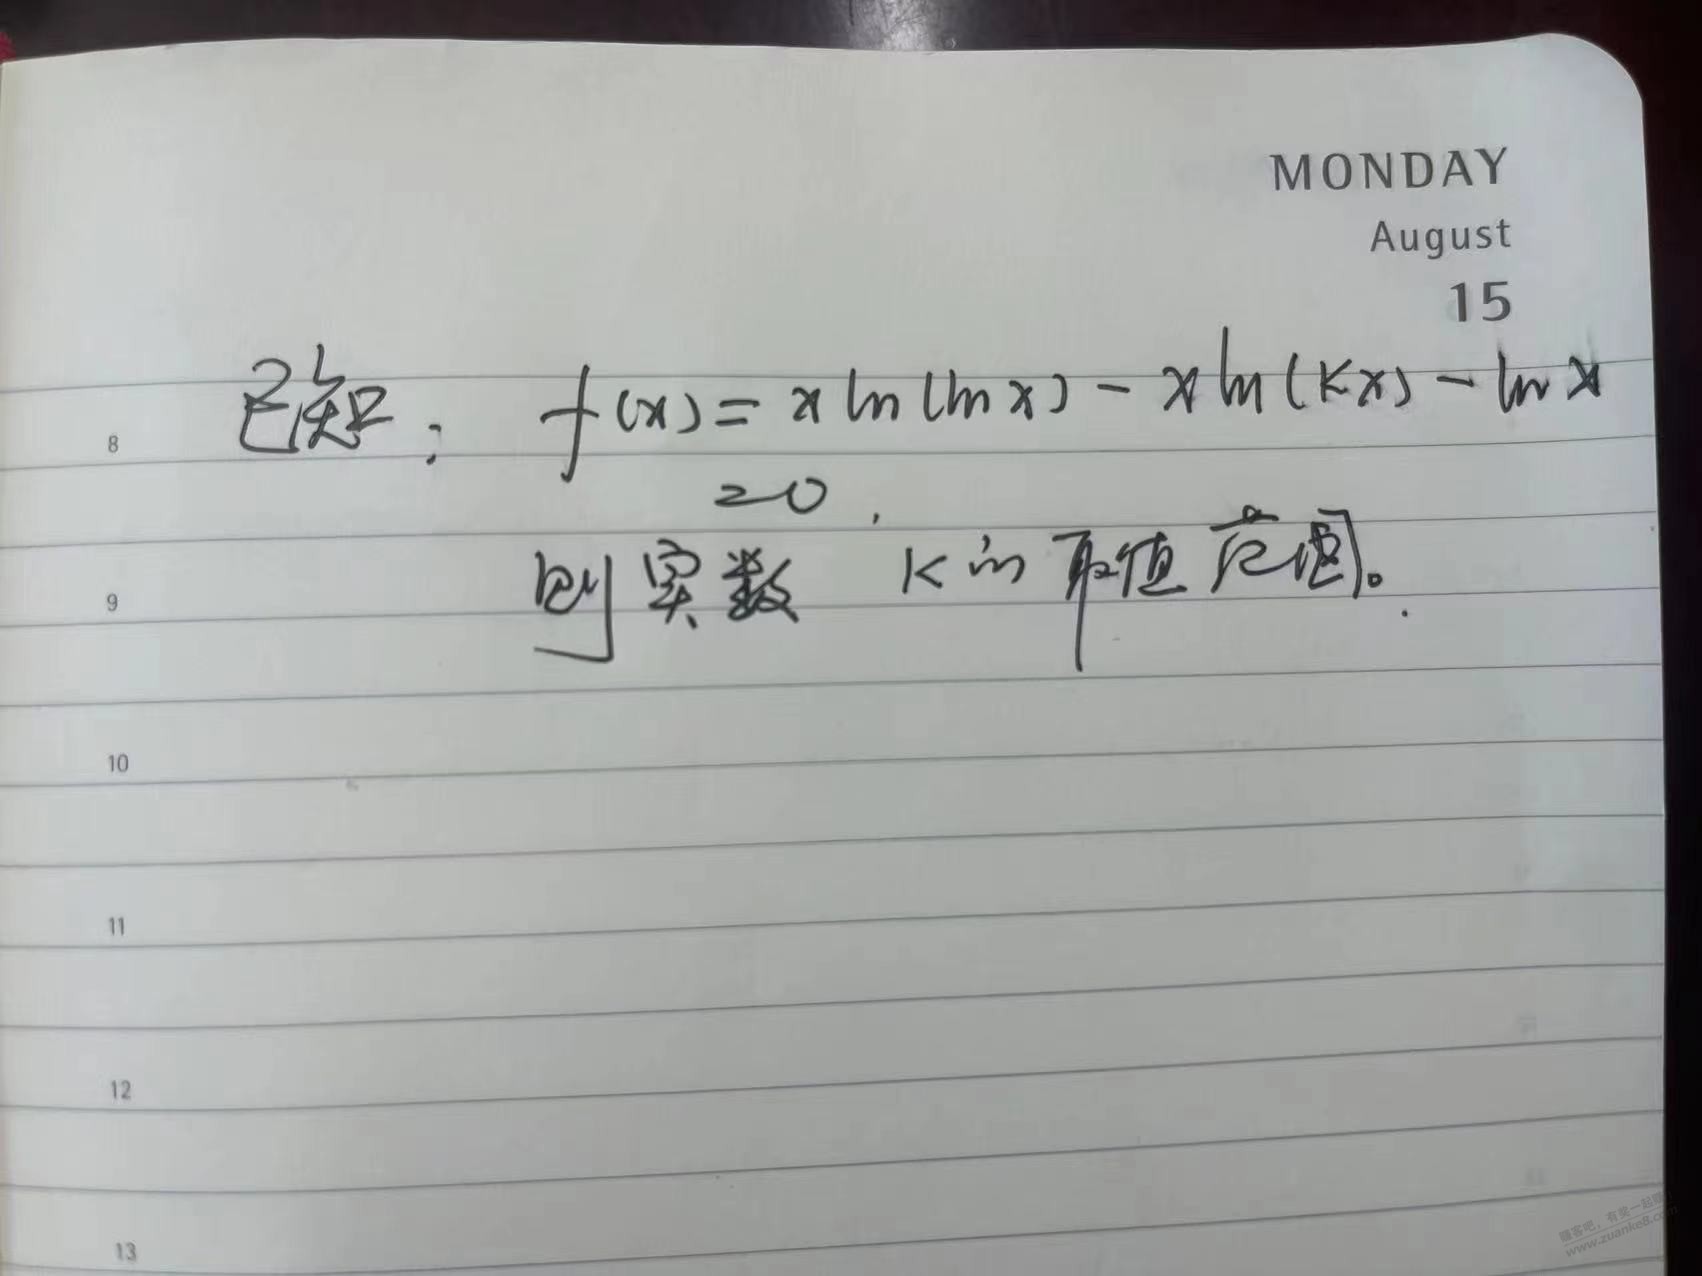 MONDAY
August
15
8 已知: f(x)=x ln(ln x) - x ln(kx) - ln x
=0,
9 则实数 k的取值范围。
10
11
12
13
赚客吧, 有奖一起赚!
www.zuanke8.com